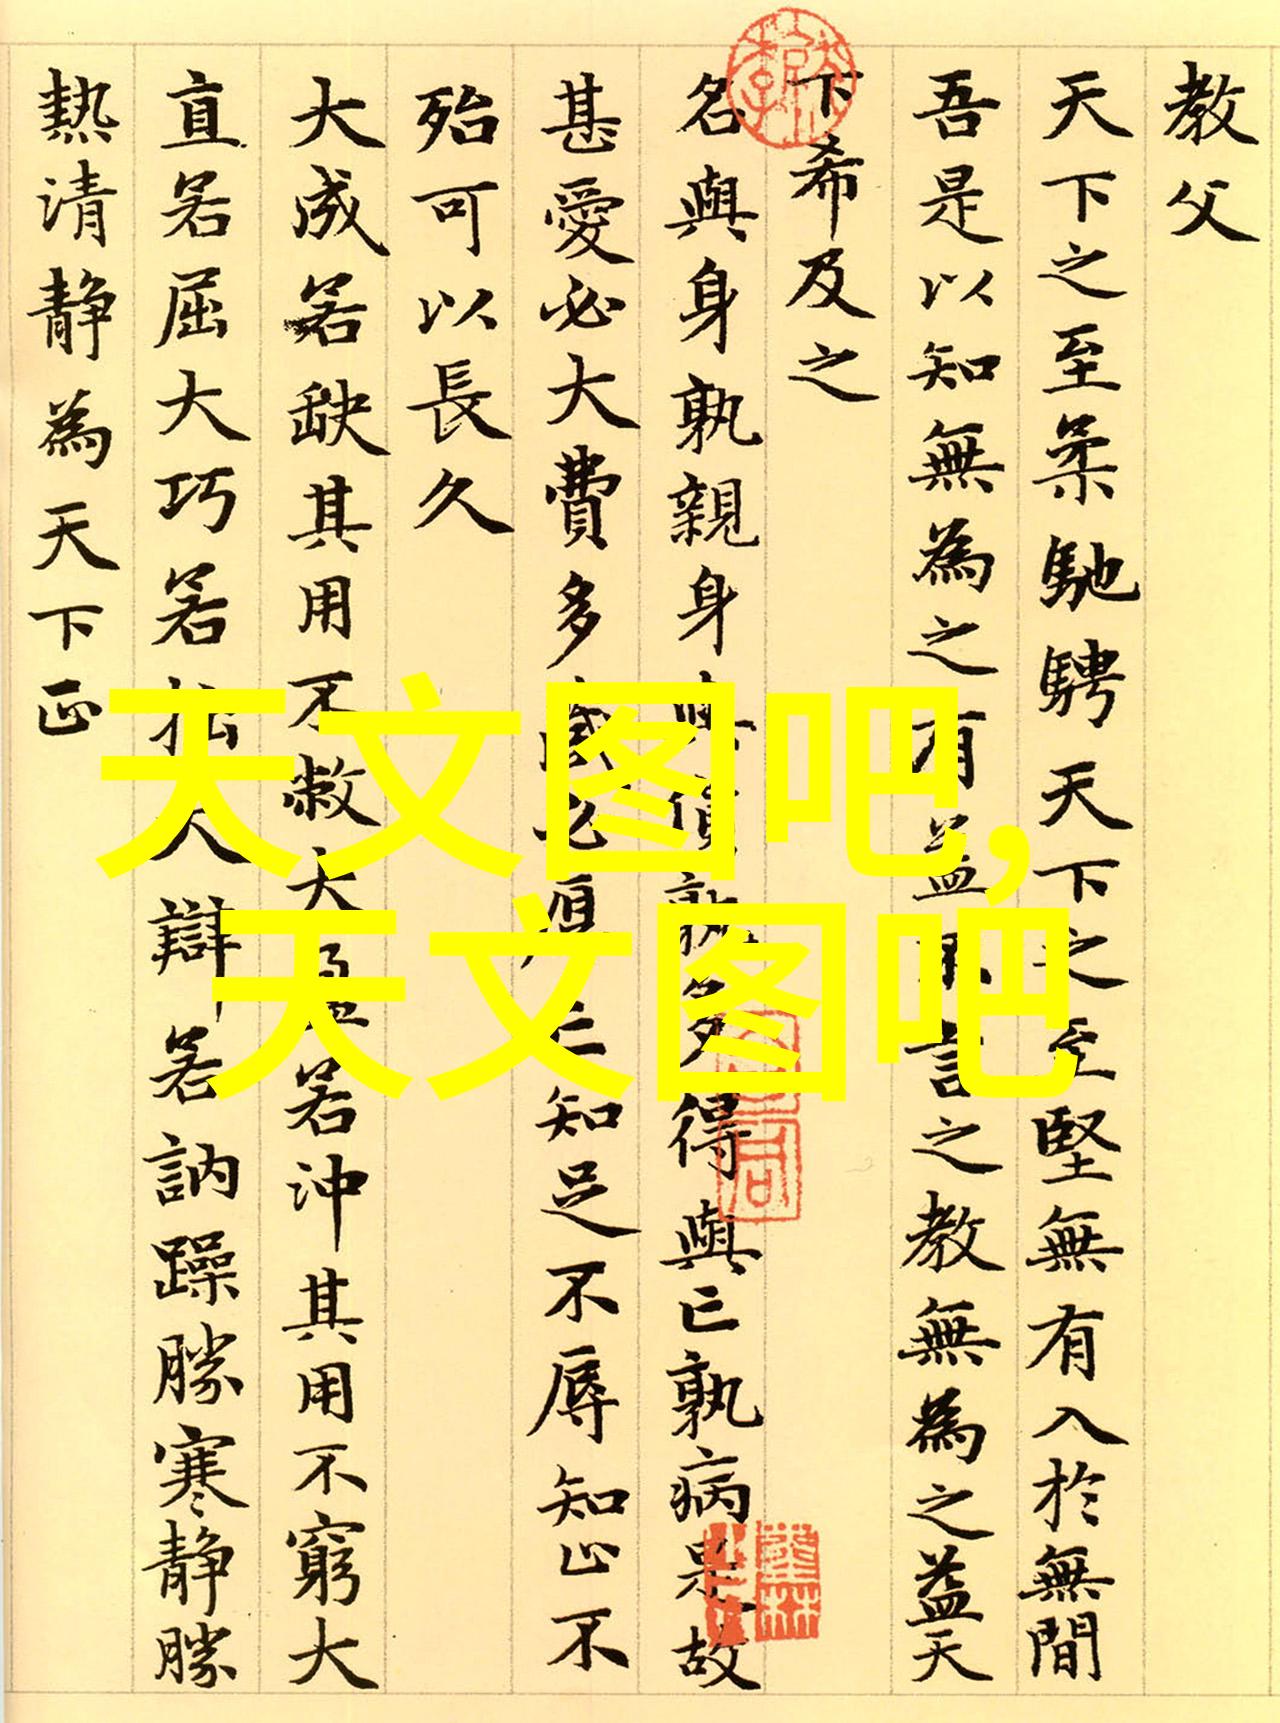 教父
天下之至柔馳騁天下之至堅無有入於無間
吾是以知無為之有益不言之教無為之益天
下希及之
名與身孰親身與貨孰多得與亡孰病是故
甚愛必大費多藏必厚亡知足不辱知止不
殆可以長久
大成若缺其用不敝大盈若沖其用不窮大
直若屈大巧若拙大辯若訥躁勝寒靜勝
熱清靜為天下正
天文图吧,
天文图吧